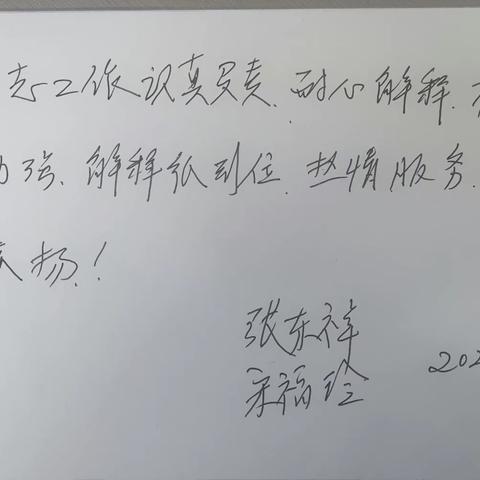 志工作认真负责、耐心解释、
力强、解释很到位、热情服务、
表扬！
张东祥
宋福玲
202